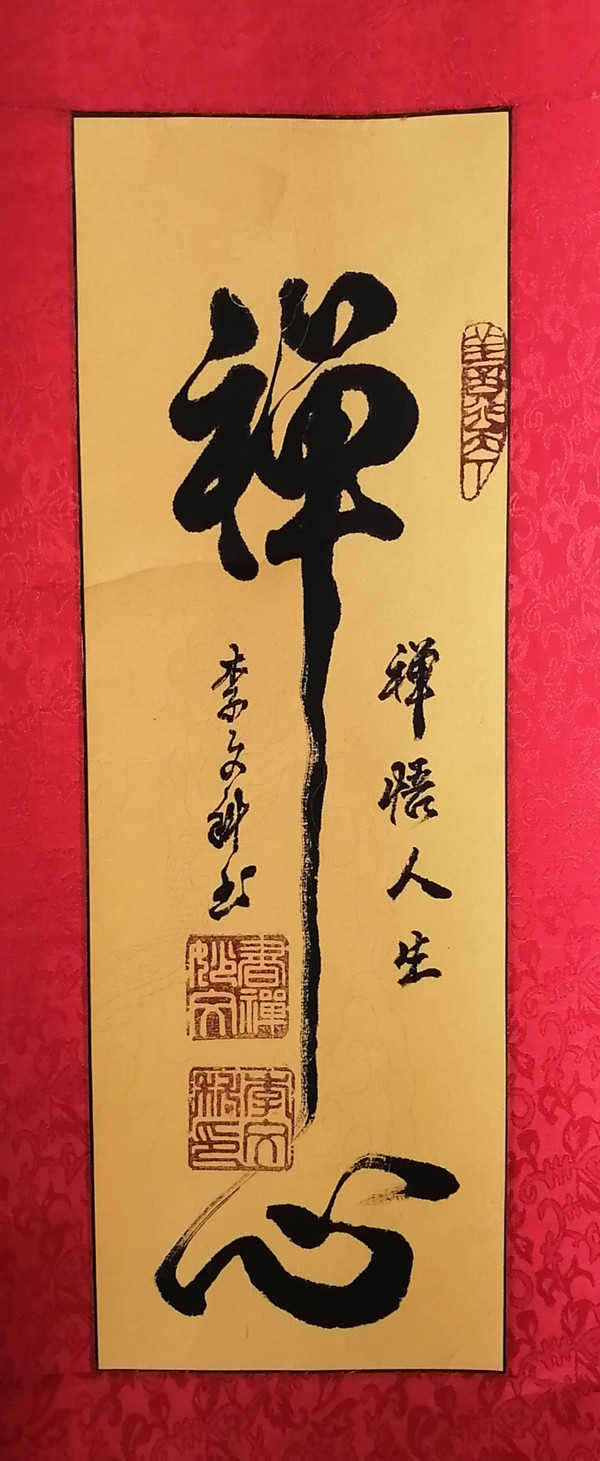 禅心
禅悟人生
李文科书